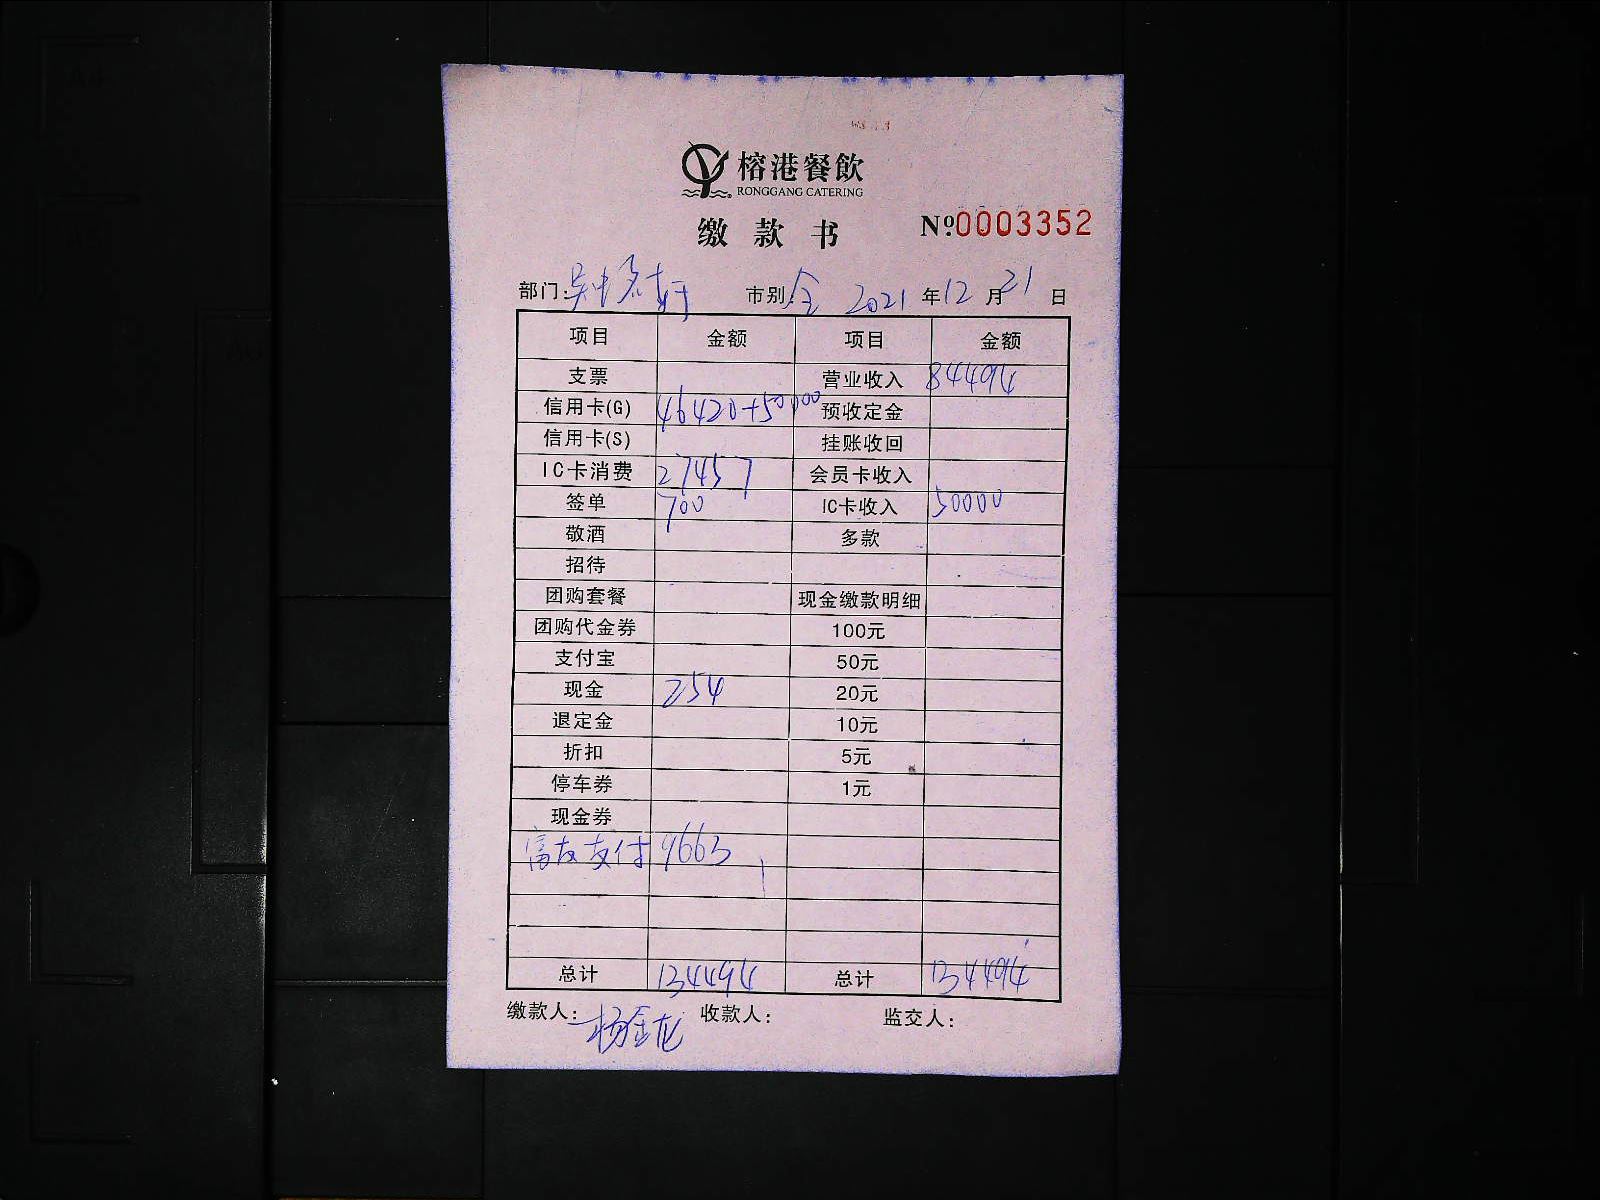 榕港餐飲
RONGGANG CATERING
缴款书 №0003352
部门: 吴中 市别: 全 2021 年 12 月 21 日
项目 金额 项目 金额
支票 营业收入 84494
信用卡(G) 46420+50000 预收定金
信用卡(S) 挂账收回
IC卡消费 27457 会员卡收入
签单 700 IC卡收入 50000
敬酒 多款
招待
团购套餐 现金缴款明细
团购代金券 100元
支付宝 50元
现金 254 20元
退定金 10元
折扣 5元
停车券 1元
现金券
富友支付 9663
总计 134494 总计 134494
缴款人: 杨金龙 收款人: 监交人: